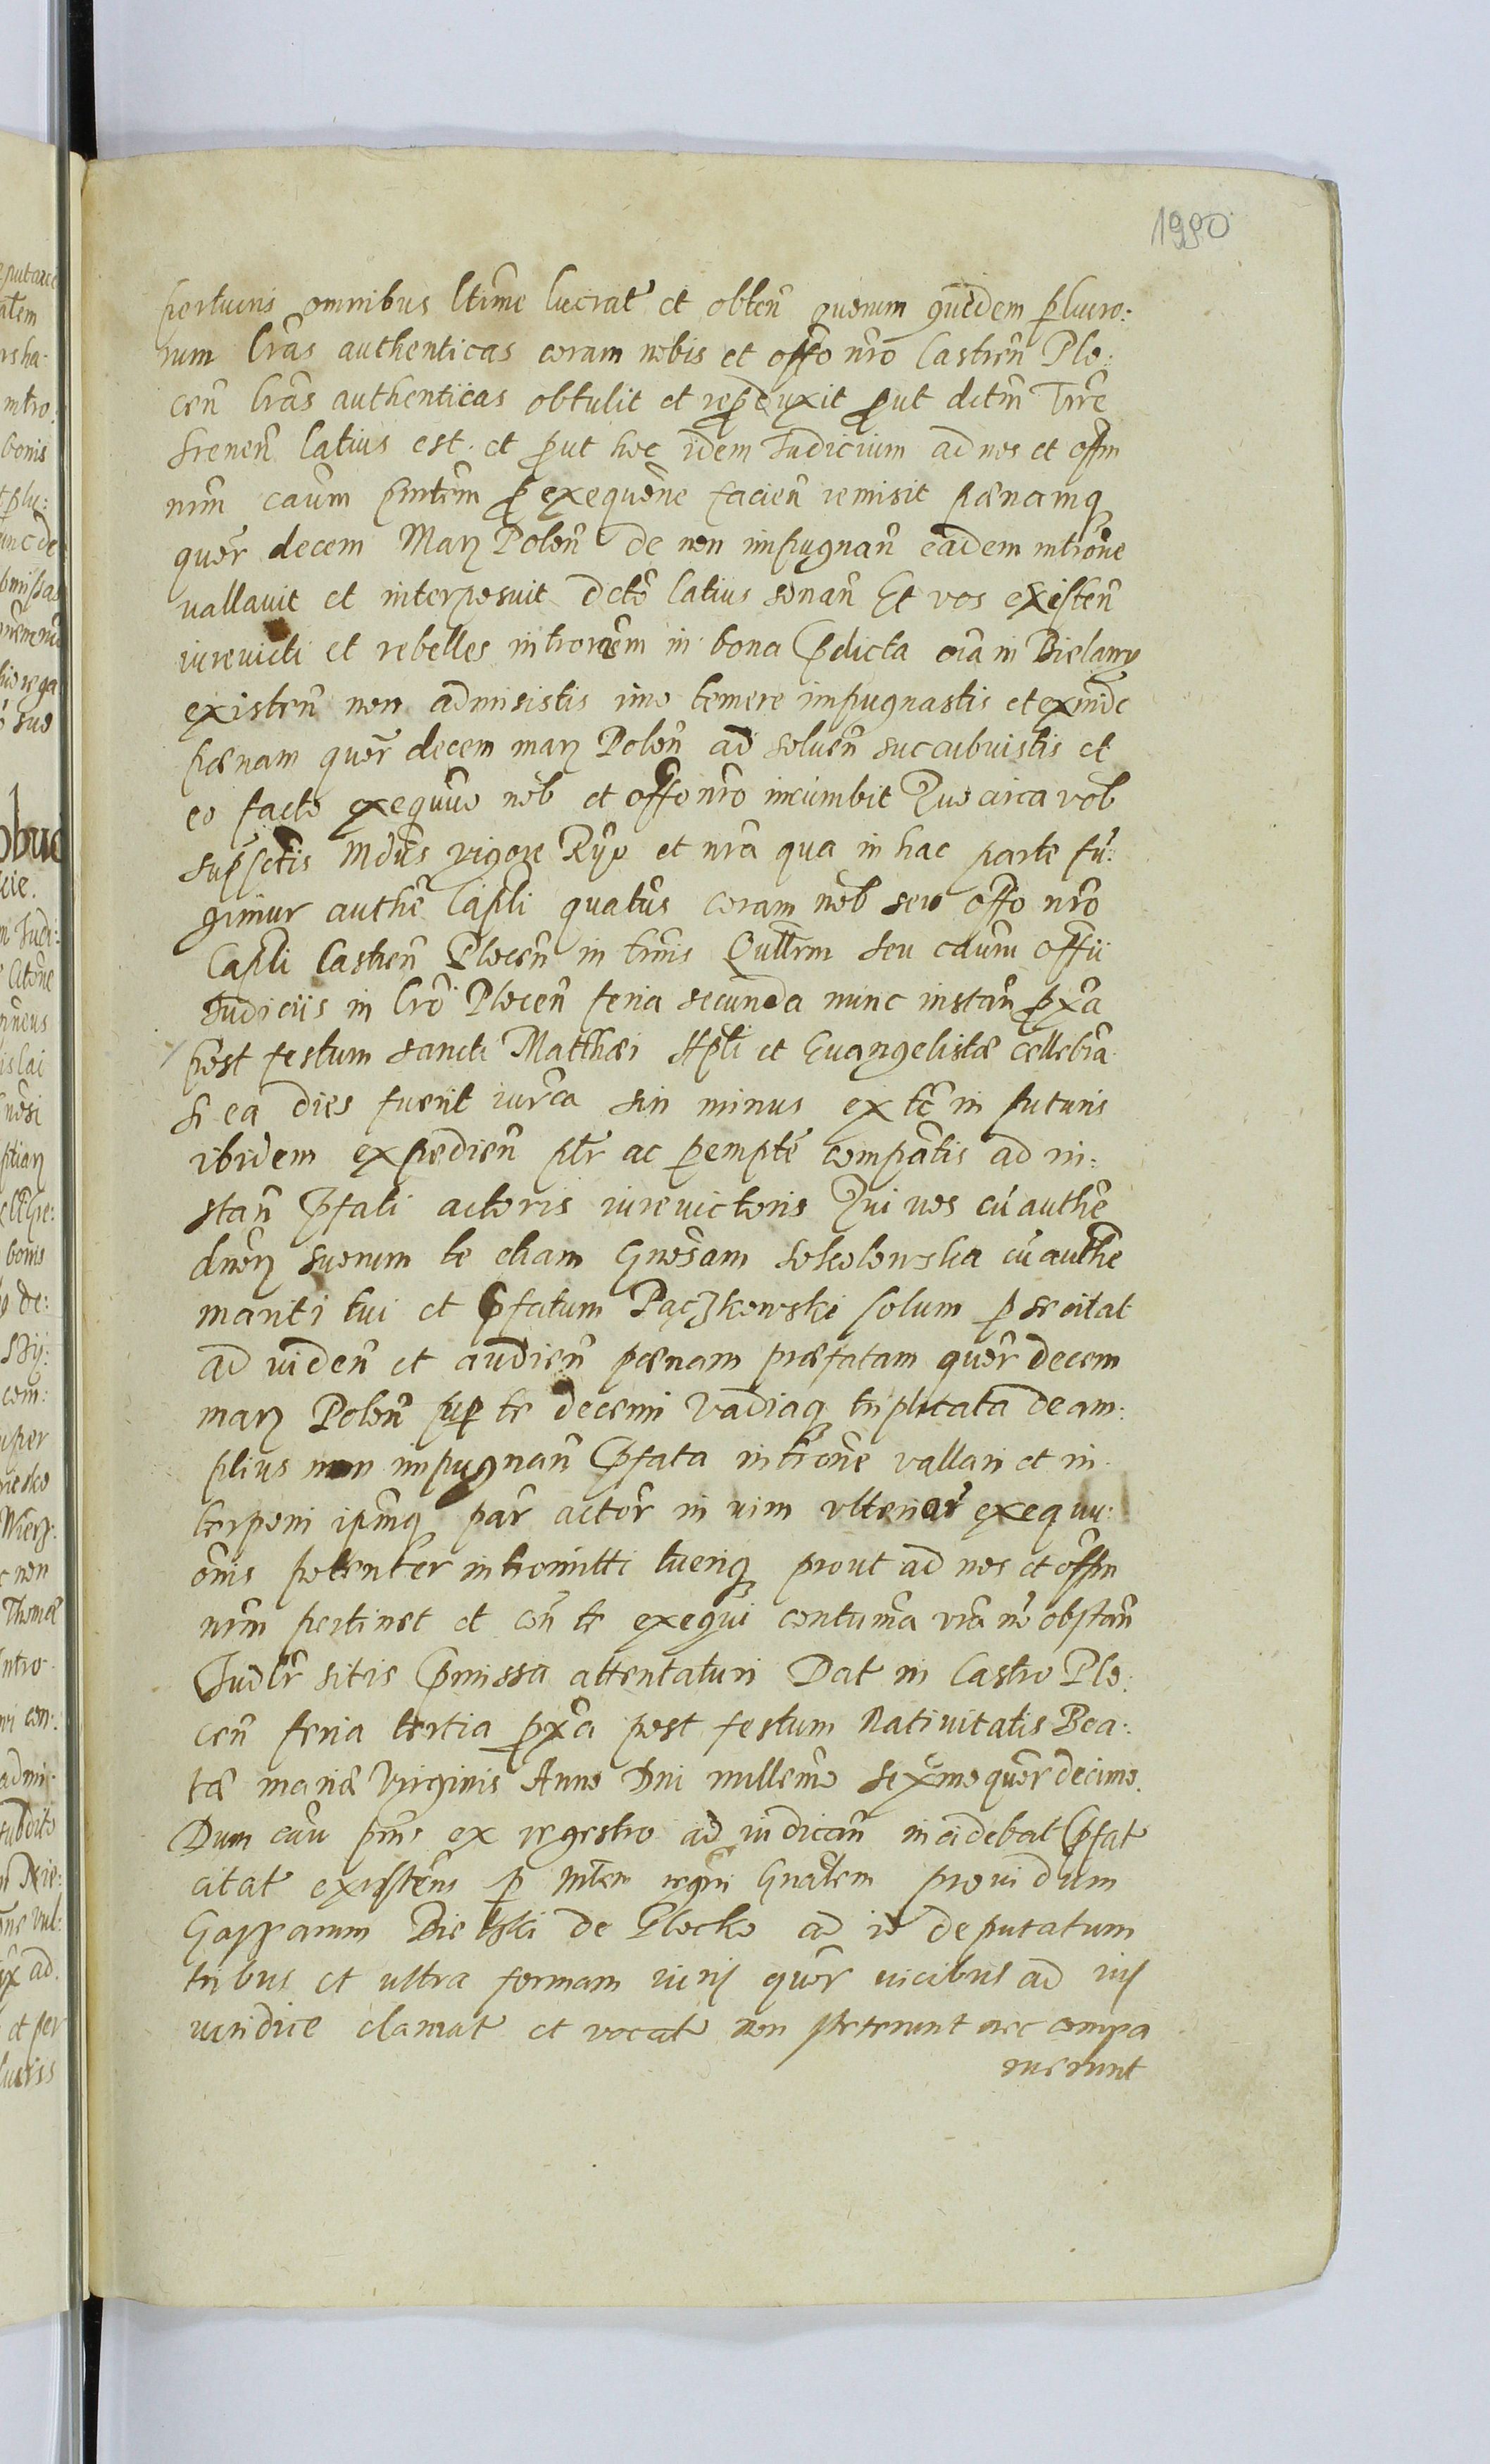 1990
perturis omnibus ltime lucrat et obten quorum quidem plucro:
rum lras authenticas coram nobis et offo nro Castren Plo:
cen lras authenticas obtulit et reproduxit prout dctm Trre
strenen latius est. et prout hoc idem Judicium ad nos et offm
nrm caum pntem pro exequone facien remisit pœnamq
quor decem Marz Polon de non impugnan eadem introne
vallauit et interposuit dcto latius sonan Et vos existen
iurevicti et rebelles intromem in bona pdicta oia in Bielany
existen non admisistis imo temere impugnastis et exinde
pœnam quor decem marz Polon ad soluen succubuistis et
eo facto exequuo nob et offo nro incumbit Quocirca vob
supsctis Mdus vigore Ryo et nra qua in hac parte fu:
gimur authe Capli quatus coram nob seu offo nro
Capli Castren Plocen in tmis Qullrm seu caum offii
Judiciis in Cro Plocen feria secunda nunc instan proxa
post festum sancti Matthæi Apli et Euangelistæ cellebra
si ea dies fuerit iurca sin minus ex tc in futuris
ibidem expedien ptr ac perempte compatis ad in:
stan pfati actoris iurevictoris Qui vos cu authe
dnorz suorum te etiam Gnosam Sokolowska cu authe
mariti tui et pfatum Pączkowski solum p se citat
ad viden et audien pœnam præfatam quor decem
marz Polon sup te decerni vadiaq triplicata de am:
plius non impugnan pfata introne vallari et in
terponi ipmq par actor in vim vlterior exequu:
onis potenter intromitti tueriq prout ad nos et offm
nrm pertinet et con te exequi contuma vra no obstan
Judlr sitis pmissa attentaturi Dat in Castro Plo:
cen feria tertia proxa post festum Natiuitatis Bea:
tæ mariæ Virginis Anno Dni millemo sexcmo quor decimo.
Dum cau pns ex regestro ad iudican incidebat pfat
citat existens p Mtem regni Gnalem prouidum
Gasparum Bielski de Plocko ad id deputatum
tribus et ultra formam iuris quor vicibus ad iuj
iuridice clamat et vocat non steterunt nec compa
ruerunt